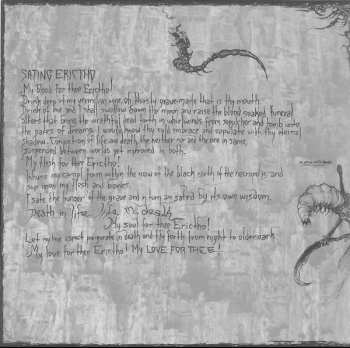 SATING ERICTHO
My blood for thee Erictho!
Drink deep of my venom rain wine, oh thirsty gravemate that is thy mouth.
Drink of me and I shall swallow down the moon and raise the blood soaked funeral
altars that brings the wrathful dead forth in whirlwinds from sepulcher and tomb unto
the gates of dreams. I would have thy cold embrace and copulate with thy eternal
shadow. Convection of life and death, the neither nor and the one in same,
suspended between worlds yet enthroned in both.
My flesh for thee Erictho!
Inhume my corpse from within the view of the black earth if the necromantic and
sup upon my flesh and bones.
I sate the hunger of the grave and in turn am sated by its own wisdom.
Death in life, life in death
My soul for thee Erictho!
Let my core corrupt and perpetuate in death and the forth from night to older dark.
My love for thee Erictho! My LOVE FOR THEE!